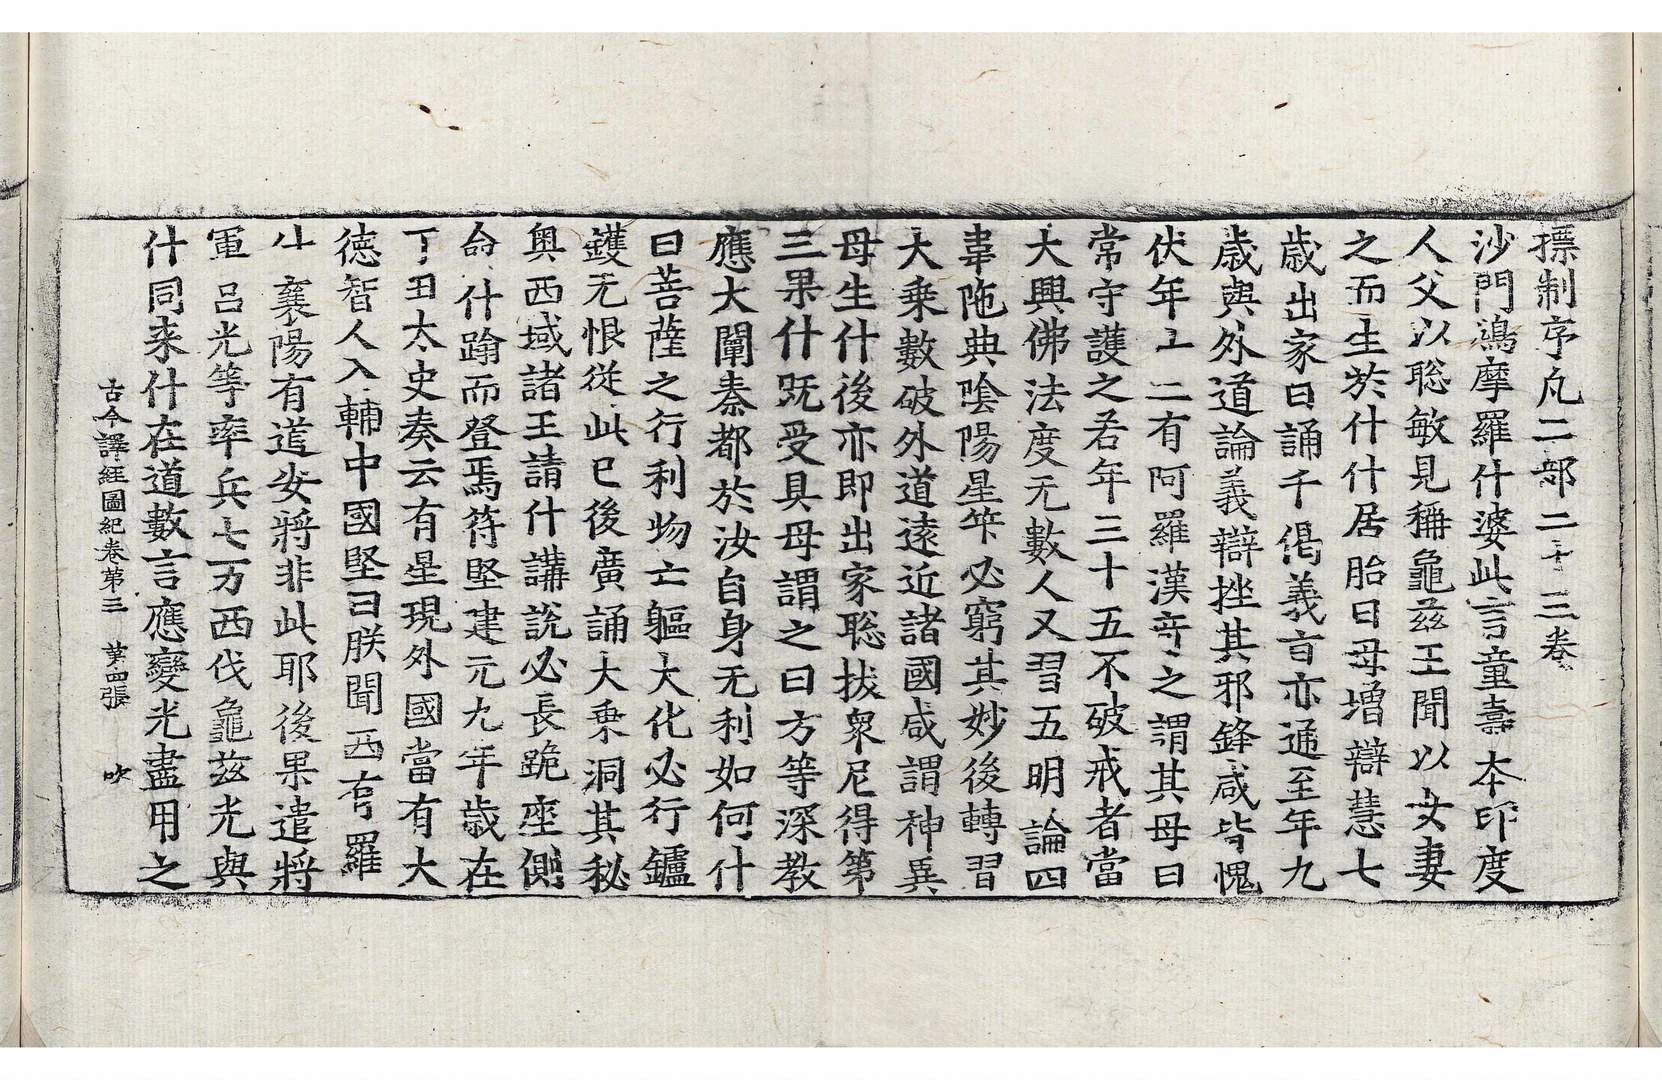 摽制序凡二部二十三卷
沙門鳩摩羅什婆此言童壽本印度
人父以聡敏見稱龜茲王聞以女妻
之而生於什什居胎日母增辯慧七
歲出家日誦千偈義旨亦通至年九
歲與外道論義辯挫其邪鋒咸皆愧
伏年二有阿羅漢奇之謂其母曰
常守護之若年三十五不破戒者當
大興佛法度无數人又習五明論四
韋陁典陰陽星筭必窮其妙後轉習
大乗數破外道遠近諸國咸謂神異
母生什後亦即出家聡拔衆尼得第
三果什旣受具母謂之曰方等深教
應大闡秦都於汝自身无利如何什
曰菩薩之行利物亡軀大化必行鑪
鑊无恨從此已後廣誦大乗洞其秘
奥西域諸王請什講說必長跪座側
命什踰而登焉符堅建元九年歲在
丁丑太史奏云有星現外國當有大
德智人入輔中國堅曰朕聞西有羅
什襄陽有道安將非此耶後果遣將
軍呂光等率兵七万西伐龜茲光與
什同来什在道數言應變光盡用之
古今譯經圖紀卷第三 第四張 吹